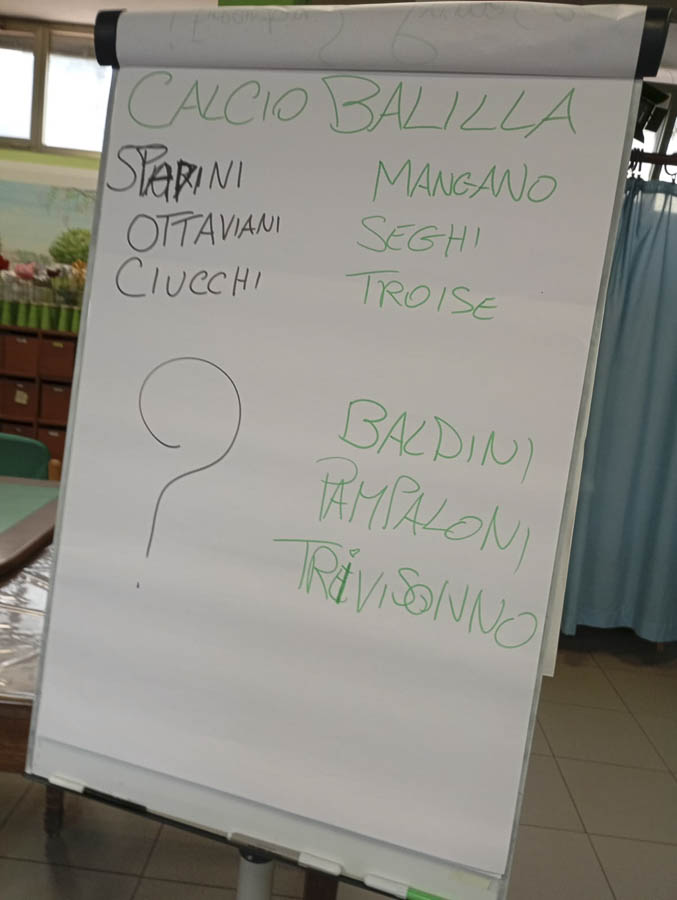 CALCIO BALILLA
SPARINI
OTTAVIANI
CIUCCHI
MANGANO
SEGHI
TROISE
?
BALDINI
PAMPALONI
TRIVISONNO